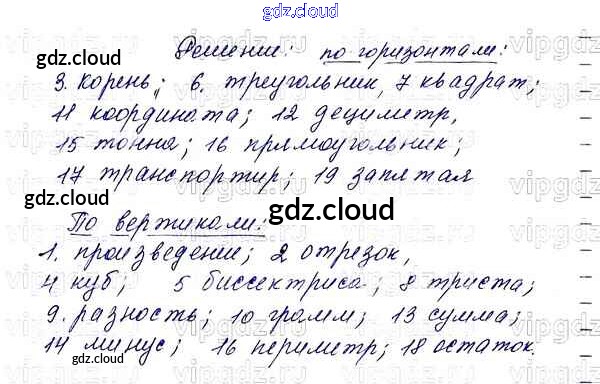 gdz.cloud
Решение: по горизонтали:
gdz.cloud
3. корень; 6. треугольник, 7 квадрат;
gdz.cloud
11 координата; 12 дециметр,
15 тонна; 16 прямоугольник;
17 транспортир; 19 запятая
gdz.cloud
gdz.cloud
По вертикали:
1. произведение; 2 отрезок,
4 куб; 5 биссектриса; 8 триста;
gdz.cloud
9. разность; 10 грамм; 13 сумма;
14 минус; 16 периметр; 18 остаток.
gdz.cloud